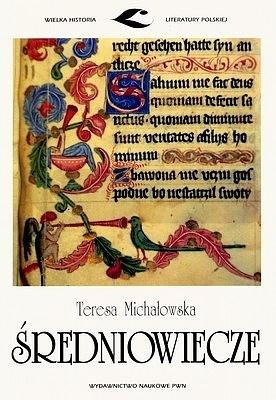 WIELKA HISTORIA LITERATURY POLSKIEJ
recht gesehen hatte syn an
thicze
Saluum me fac deus
quoniam defecit sa
nctus · quoniam diminute
sunt ueritates a filijs ho
minum
Zbawona me uczin gos
podne bo nestatczil swoty
Teresa Michałowska
ŚREDNIOWIECZE
WYDAWNICTWO NAUKOWE PWN